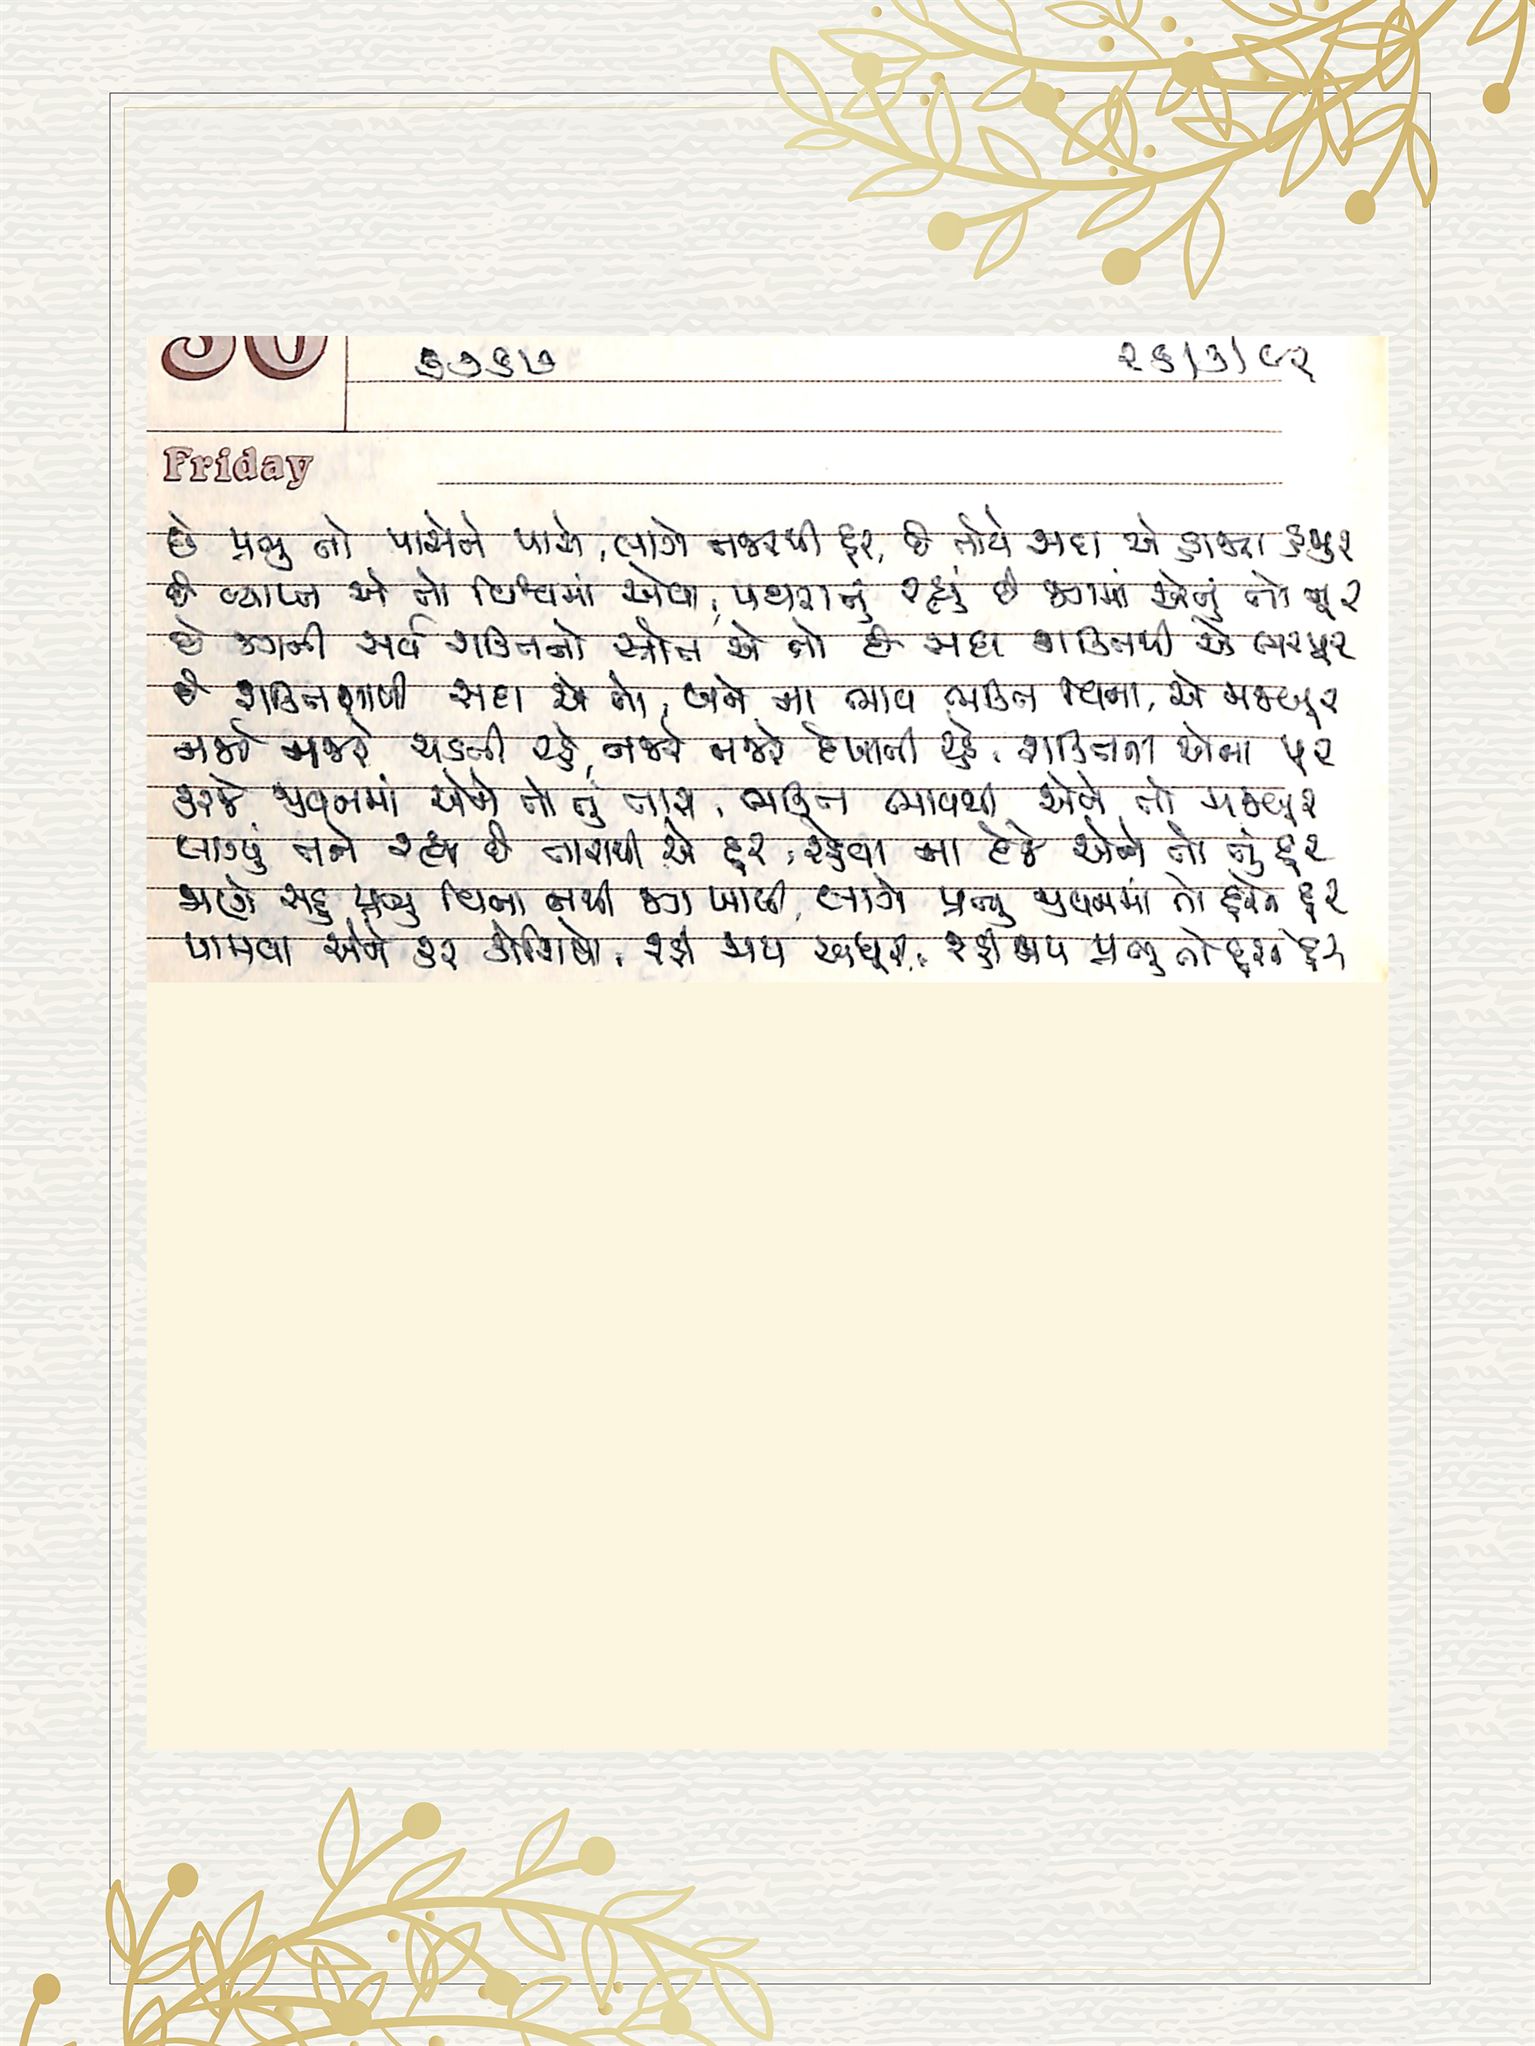 30 ૩૭૬૭ ૨૬/૩/૯૨
Friday
છે પ્રભુ તો પાસેને પાસે, લાગે નજરથી દૂર, છે તોયે સદા એ હાજરા હજુર
છે વ્યાપ્ત એ તો વિશ્વમાં એવા, પથરાતું રહ્યું છે જગમાં એનું તો નૂર
છે જગની સર્વ શક્તિનો સ્ત્રોત એ તો છે સદા શક્તિથી એ ભરપૂર
છે શક્તિશાળી સદા એ તો, બને ના ભાવ ભક્તિ વિના, એ મજબૂર
નજરે નજરે ચડતી રહે, નજરે નજરે દેખાતી રહે, શક્તિના એના પૂર
કરજે જીવનમાં એને તો તું તારા, ભક્તિ ભાવથી એને તો મજબૂર
લાગ્યું તને રહ્યા છે તારાથી એ દૂર, રહેવા ના દેજે એને તો તું દૂર
જાણે સહુ પ્રભુ વિના નથી જગ ખાલી, લાગે પ્રભુ જીવનમાં તો દૂરને દૂર
પામવા એને કર કોશિષો, રહી જાય અધૂરી, રહી જાય પ્રભુ તો દૂરને દૂર